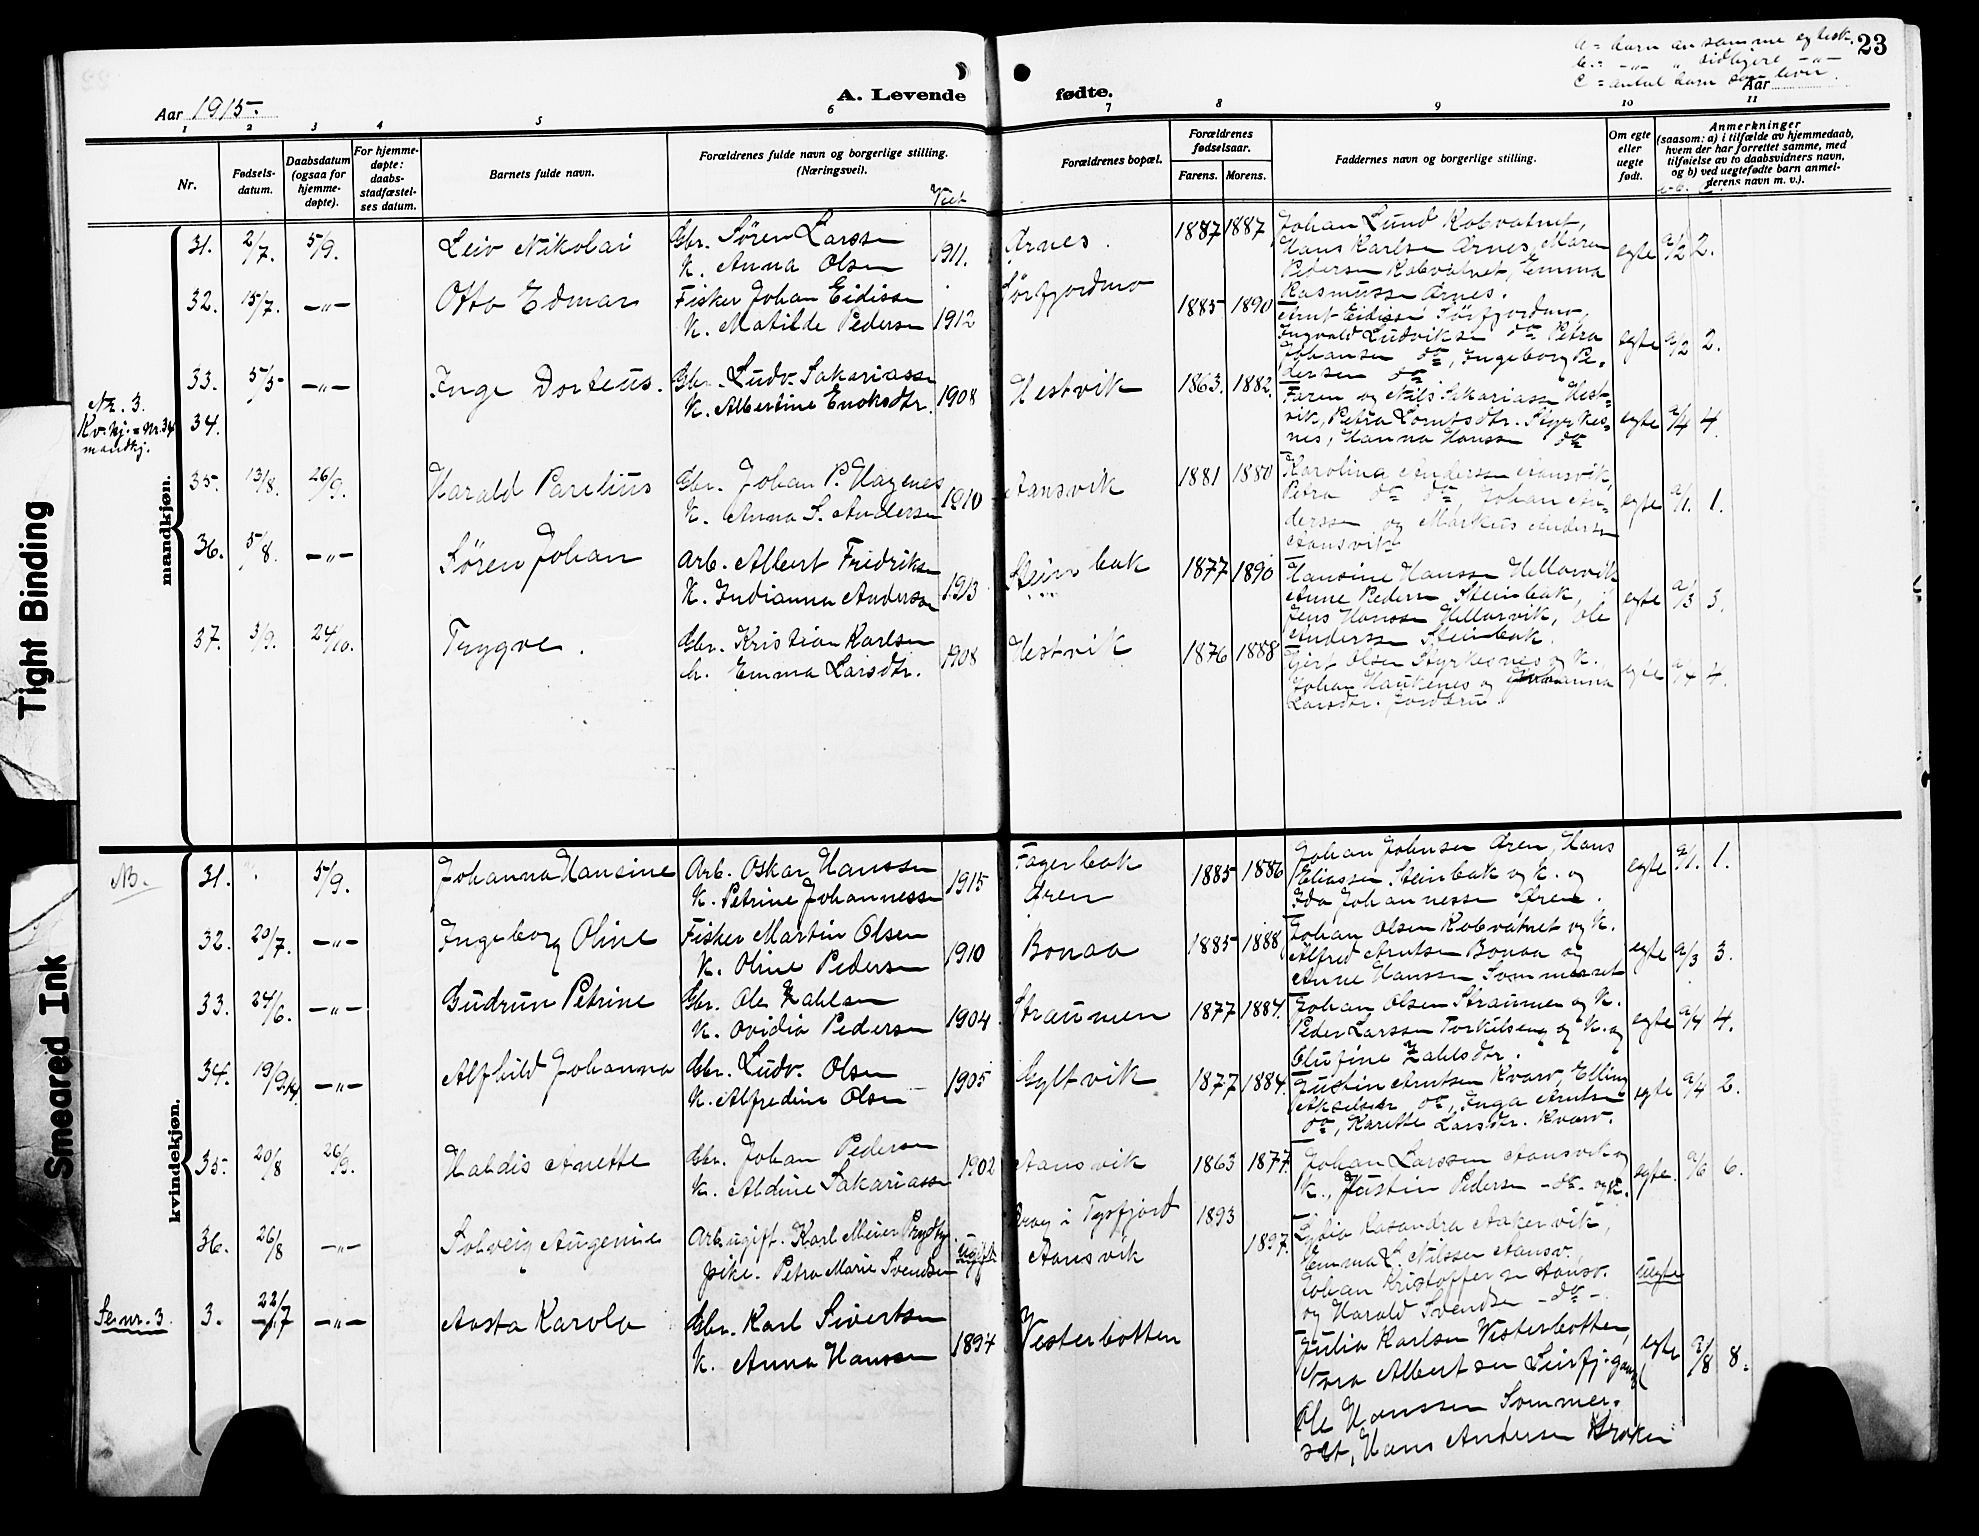 23
a = barn av samme egtesk.
b = -„- „ tidligere -„-
c = antal barn som lever.
Aar 1915.
A. Levende fødte.
Aar
1 2 3 4 5 6 7 8 9 10 11
Nr.
Fødsels-
datum.
Daabsdatum
(ogsaa for
hjemme-
døpte).
For hjemme-
døpte:
daabs-
stadfæstel-
ses datum.
Barnets fulde navn.
Forældrenes fulde navn og borgerlige stilling.
(Næringsvei).
Viet
Forældrenes bopæl.
Forældrenes
fødselsaar.
Farens. Morens.
Faddernes navn og borgerlige stilling.
Om egte
eller
uegte
født.
Anmerkninger
(saasom: a) i tilfælde av hjemmedaab,
hvem der har forrettet samme, med
tilføielse av to daabsvidners navn,
og b) ved uegtefødte barn anmel-
derens navn m. v.).
mandkjøn.
31. 2/7. 5/9. Leiv Nikolai
Gbr. Søren Larssen
K. Anna Olsen
1911. Ørnes. 1887 1887
Johan Lund Kobvatnet,
Hans Karlsen Ørnes, Maren
Pedersen Kobvatnet, Emma
Rasmussen Ørnes.
egte a/2 2.
32. 15/7. -„- Otto Edmar
Fisker Johan Eidissen
K. Matilde Pedersen
1912 Sørfjordmo 1885 1890
Arnt Eidissen Sørfjordmo,
Ingvald Ludviksen do Petra
Johansen do, Ingeborg Pe-
dersen do
egte a/2 2.
Nr. 3.
Kv.kj. = Nr. 34
mandkj.
33. 5/5 -„- Inge Dorteus.
Gbr. Ludv. Sakariassen
K. Albertine Enoksdtr.
1908 Hestvik 1863. 1882.
Faren og Nils Sakariassen Hest-
vik, Petra Lorntsdtr. Styrkes-
nes, Hanna Hanssen do
egte a/4 4.
34.
35. 13/8. 26/9. Harald Parelius
Gbr. Johan P. Hagenes
K. Anna S. Andersen
1910 Aansvik 1881 1880
Karolina Andersen Aansvik,
Petra do do Johan An-
derssen og Markus Andersen
Aansvik
egte a/1. 1.
36. 5/8. -„- Søren Johan
Arb. Albert Fredriksen
K. Indianna Andersen
1913 Steinbak 1877 1890
Hansine Hanssen Hellarvik
Anne Pedersen Steinbak,
Jens Hanssen Hellarvik, Ole
Anderssen Steinbak.
egte a/3 3.
37. 3/9. 24/10. Trygve.
Gbr. Kristian Karlsen
h. Emma Larsdtr.
1908 Hestvik 1876 1888
Olsen Styrkesnes og K.
Johan Haukenes og Johanna
Larsdtr.
egte a/4 4.
kvindekjøn.
NB.
31. 5/9. Johanna Hansine
Arb. Oskar Hanssen
K. Petrine Johannessen
1915 Fagerbak
Øren 1885 1886
Johan Johnsen Øren, Hans
Eliassen Steinbak og K. og
Ida Johannessen Øren.
egte a/1. 1.
32. 20/7. -„- Ingeborg Oline
Fisker Martin Olsen
K. Oline Pedersen
1910 Bonaa 1885 1888
Johan Olsen Kobvatnet og K.
Alfred Arntsen Bonaa og
Anne Hanssen Sommerset
egte a/3 3.
33. 24/6. -„- Gudrun Petrine
Gbr. Ole Zahlsen
K. Ovidia Pedersen
1904. Straumen 1877 1884.
Johan Olsen Straumen og K.
Peder Larssen Torkilseng og K. og
Olufine Zahlsdtr.
egte a/4 4.
34. 19/9.14. -„- Alfhild Johanna
Gbr. Ludv. Olsen
K. Alfredine Olsen
1905 Gyltvik 1877 1884.
Justin Arntsen Kvarv, Elling
Akselsen do, Inga Arntsen
do, Karette Larsdtr. Kvarv.
egte a/4 2.
35. 20/8 26/9. Haldis Anette
Gbr. Johan Pedersen
K. Aldine Sakariassen
1902 Aansvik 1863 1877.
Johan Larssen Aansvik og
K., Justin Pedersen -do- og K.
egte. a/6 6.
36. 26/8 -„- Solveig Augenie
Arb. ugift. Karl Meier
pike. Petra Marie Svendsen
ugift i Tysfjord
Aansvik 1893 1897.
Lydia Kasandra Aakervik,
Emma L. Nilssen Aansv.,
Johan Kristoffersen Aansv.
og Harald Svendsen -do-
uegte
Se nr. 3
3. 22/7 -„- Aasta Karola
Gbr. Karl Sivertsen
K. Anna Hanssen
1894 Vesterbotten
Julia Karlsen Vesterbotten,
Nora Albertsen
Ole Hanssen Sommer-
set, Hans Andersen
egte a/8 8.
Tight Binding
Smeared Ink